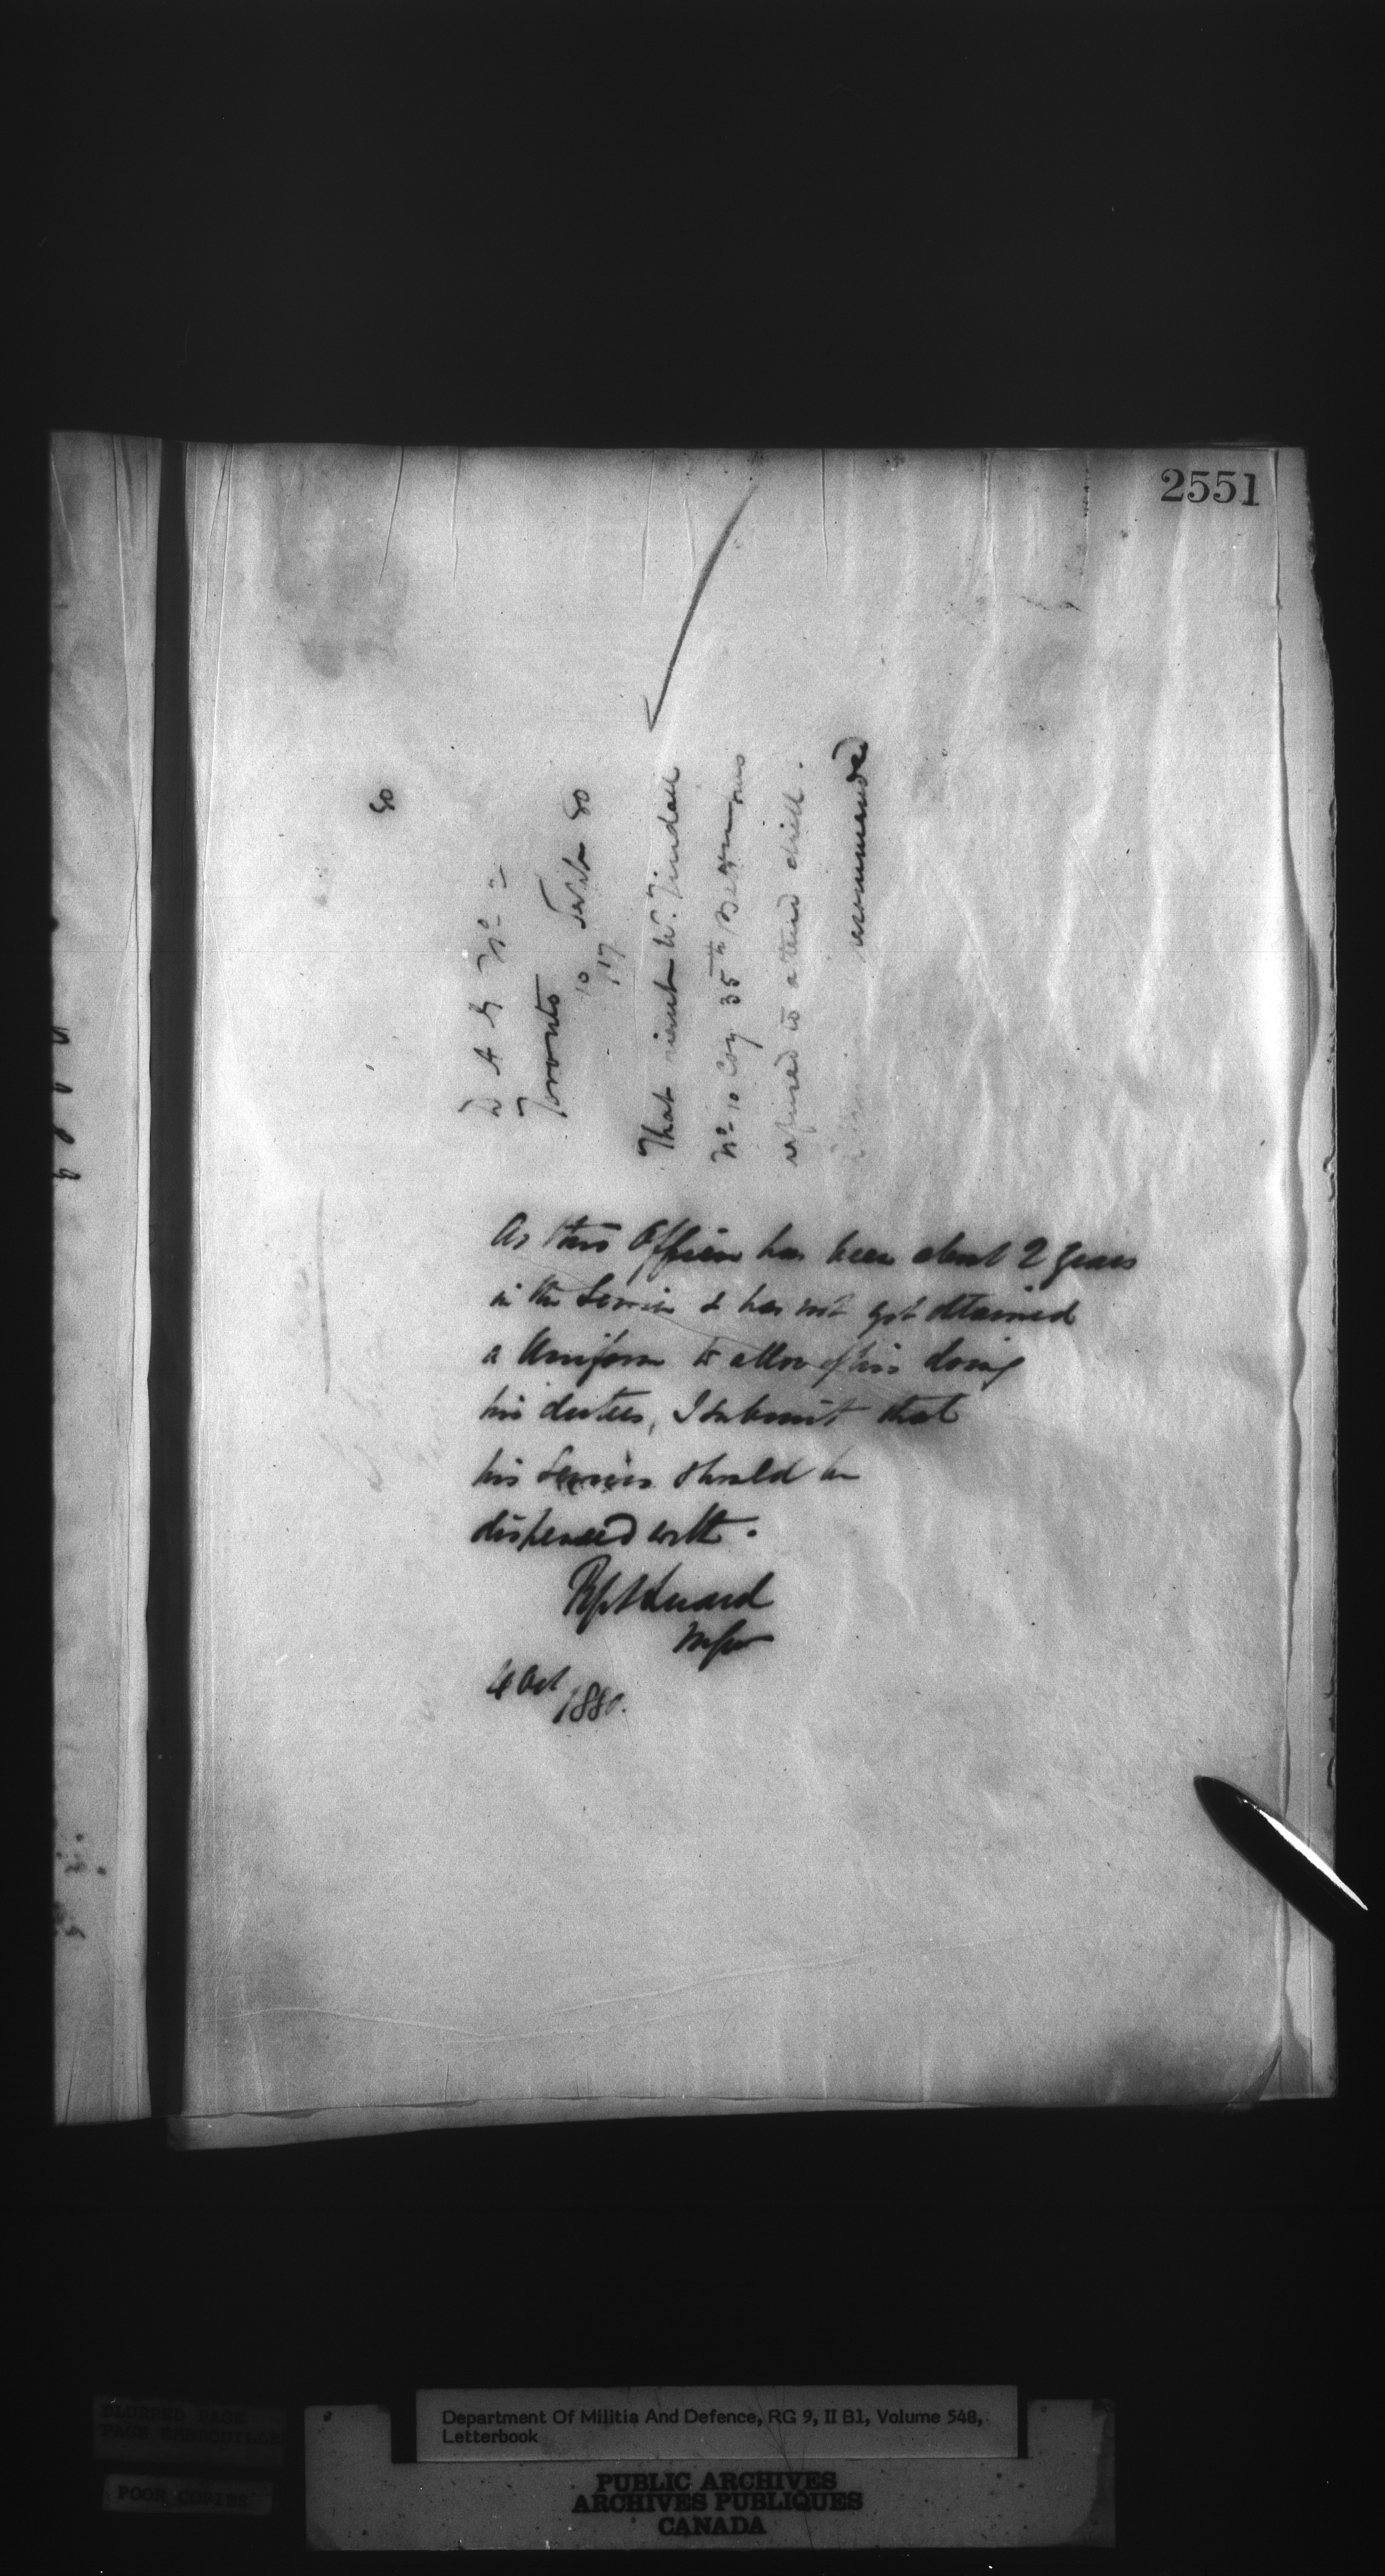 2551
80
D A G No 2
Toronto
10 Sept 80
117
That Lieut Wm. Tindall
No 10 Coy 35th Battn has
refused to attend drill.
recommended
As this Officer has been about 2 years
in the Service & has not yet obtained
a Uniform to allow of his doing
his duties, I submit that
his Services should be
dispensed with.
Luard
M Gen
4 Oct
1880.
Department Of Militia And Defence, RG 9, II B1, Volume 548,
Letterbook
BLURRED PAGE
PAGE EMBROUILLEE
POOR COPIES
PUBLIC ARCHIVES
ARCHIVES PUBLIQUES
CANADA